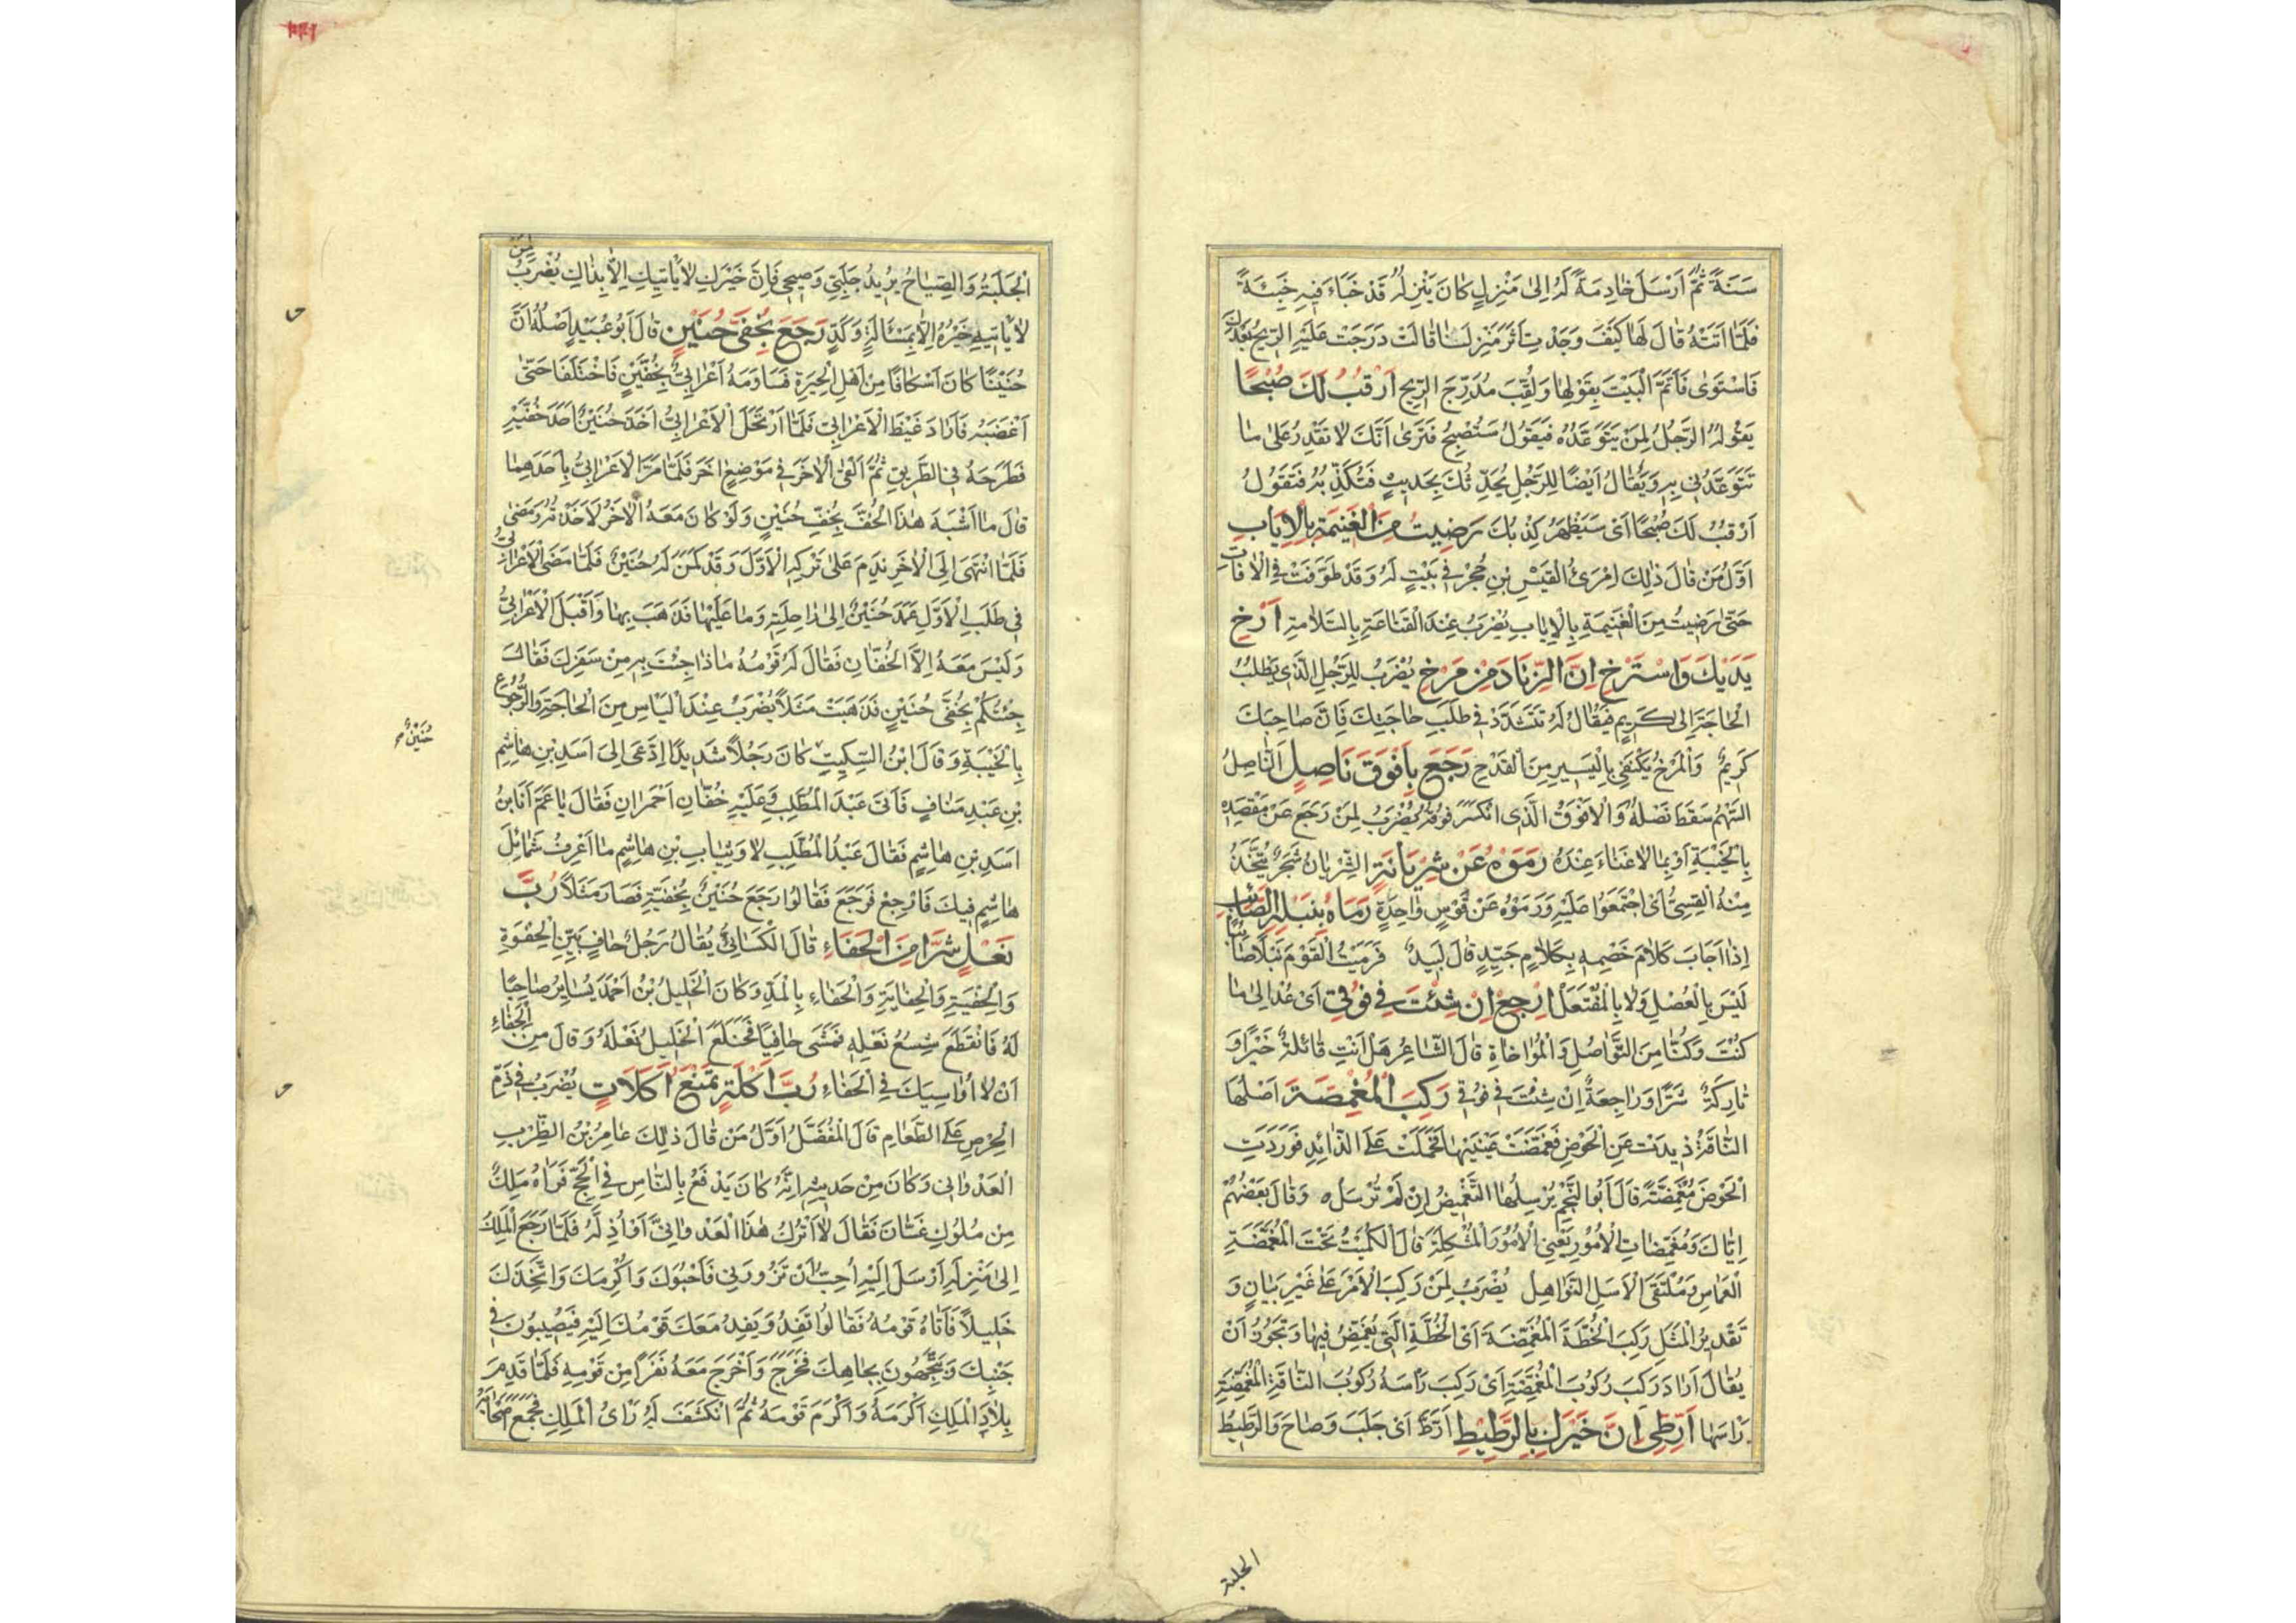 سَنَةً ثُمَّ اَرْسَلَ خَادِمَةً لَهُ اِلٰى مَنْزِلٍ كَانَ يَنْزِلُهُ قَدْ خَبَاءَ فِيهِ خَبِيْئَةً
فَلَمَّا اَتَتْهُ قَالَ لَهَا كَيْفَ وَجَدْتِ اَثَرَ مَنْزِلِنَا قَالَتْ دَرَجَتْ عَلَيْهِ الرِّيحُ بَعْدَكَ
فَاسْتَوٰى فَاَتَمَّ الْبَيْتَ بِقَوْلِهَا وَلُقِّبَ مُدَرِّجَ الرِّيحِ اَرْقُبُ لَكَ صُبْحًا
يَقُولُهُ الرَّجُلُ لِمَنْ يَتَوَعَّدُهُ فَيَقُولُ سَتُصْبِحُ فَتَرٰى اَنَّكَ لَا تَقْدِرُ عَلٰى مَا
تَتَوَعَّدُنِى بِهِ وَيُقَالُ اَيْضًا لِلرَّجُلِ يُحَدِّثُكَ بِحَدِيثٍ فَتُكَذِّبُهُ فَتَقُولُ
اَرْقُبُ لَكَ صُبْحًا اَىْ سَيَظْهَرُ كِذْبُكَ رَضِيتُ مِنَ الْغَنِيمَةِ بِالْاِيَابِ
اَوَّلُ مَنْ قَالَ ذٰلِكَ اِمْرَئُ الْقَيْسِ بْنِ حُجْرٍ فِى بَيْتٍ لَهُ وَقَدْ طَوَّفْتُ فِى الْاٰفَاتِ
حَتّٰى رَضِيتُ مِنَ الْغَنِيمَةِ بِالْاِيَابِ يُضْرَبُ عِنْدَ الْقَنَاعَةِ بِالسَّلَامَةِ اَرْخِ
يَدَيْكَ وَاسْتَرْخِ اِنَّ الزِّنَادَ مِنْ مَرْخٍ يُضْرَبُ لِلرَّجُلِ الَّذِى يَطْلُبُ
الْحَاجَةَ اِلٰى كَرِيمٍ فَيُقَالُ لَهُ تَتَشَدَّدْ فِى طَلَبِ حَاجَتِكَ فَاِنَّ صَاحِبَكَ
كَرِيمٌ وَالْمَرْخُ يَكْتَفِى بِالْيَسِيرِ مِنَ الْقَدْحِ رَجَعَ بِاَفْوَقَ نَاصِلٍ اَلنَّاصِلُ
السَّهْمُ سَقَطَ نَصْلُهُ وَالْاَفْوَقُ الَّذِى انْكَسَرَ فُوقُهُ يُضْرَبُ لِمَنْ رَجَعَ عَنْ مَقْصِدِهِ
بِالْخَيْبَةِ اَوْ بِمَا لَا غَنَاءَ عِنْدَهُ رَمَوْهُ عَنْ شِرْيَانَةٍ الشِّرْيَانُ شَجَرٌ يُتَّخَذُ
مِنْهُ الْقِسِىُّ اَىْ اجْتَمَعُوا عَلَيْهِ وَرَمَوْهُ عَنْ قَوْسٍ وَاحِدَةٍ رَمَاهُ بِنَبْلِهِ الصَّائِبِ
اِذَا اَجَابَ كَلَامَ خَصْمِهِ بِكَلَامٍ جَيِّدٍ قَالَ لَبِيدٌ فَرَمَيْتُ الْقَوْمَ نَبْلًا صَائِبًا
لَيْسَ بِالْعُصْلِ وَلَا بِالْمُفْتَعَلِ اِرْجِعْ اِنْ شِئْتَ فِى فُوقِى اَىْ عُدْ اِلٰى مَا
كُنْتَ وَكُنَّا مِنَ التَّوَاصُلِ وَالْمُؤَاخَاةِ قَالَ الشَّاعِرُ هَلْ اَنْتِ قَائِلَةٌ خَيْرًا وَ
تَارِكَةٌ شَرًّا وَرَاجِعَةٌ اِنْ شِئْتَ فِى فُوقِى رَكِبَ الْمُغْمِضَةَ اَصْلُهَا
النَّاقَةُ ذِيدَتْ عَنِ الْحَوْضِ فَغَمَّضَتْ عَيْنَيْهَا فَحَمَلَتْ عَلَى الذَّائِدِ فَوَرَدَتِ
الْحَوْضَ مُغَمِّضَةً قَالَ اَبُو النَّجْمِ يُرْسِلُهَا التَّغْمِيضُ اِنْ لَمْ تُرْسَلْ ه وَقَالَ بَعْضُهُمْ
اِيَّاكَ وَمُغَمِّضَاتِ الْاُمُورِ يَعْنِى الْاُمُورَ الْمُشْكِلَةَ قَالَ الْكُمَيْتُ تَحْتَ الْمُغَمِّضَةِ
الْعَمَاسِ وَمُلْتَقَى الْاَسَلِ النَّوَاهِلِ يُضْرَبُ لِمَنْ رَكِبَ الْاَمْرَ عَلٰى غَيْرِ بَيَانٍ وَ
تَقْدِيرُ الْمَثَلِ رَكِبَ الْخُطَّةَ الْمُغَمِّضَةَ اَىْ الْخُطَّةَ الَّتِى يُغَمِّضُ فِيهَا وَيَجُوزُ اَنْ
يُقَالَ اَرَادَ رَكِبَ رُكُوبَ الْمُغَمِّضَةِ اَىْ رَكِبَ رَاْسَهُ رُكُوبَ النَّاقَةِ الْمُغَمِّضَةِ
رَاْسَهَا اَرِطِّى اِنَّ خَيْرَكِ بِالرَّطِيطِ اَرَطَّ اَىْ جَلَبَ وَصَاحَ وَالرَّطِيطُ
الجلبة
الْجَلَبَةُ وَالصِّيَاحُ يُرِيدُ جَلِّبِى وَصِيحِى فَاِنَّ خَيْرَكِ لَا يَاْتِيكِ اِلَّا بِذَاكِ يُضْرَبُ لِمَنْ
لَا يَاْتِيهِ خَيْرُهُ اِلَّا بِمَسْأَلَةٍ وَكَدٍّ رَجَعَ بِخُفَّىْ حُنَيْنٍ قَالَ اَبُو عُبَيْدٍ اَصْلُهُ اَنَّ
حُنَيْنًا كَانَ اَسْكَافًا مِنْ اَهْلِ الْحِيرَةِ فَسَاوَمَهُ اَعْرَابِىٌّ بِخُفَّيْنِ فَاخْتَلَفَا حَتّٰى
اَغْضَبَهُ فَاَرَادَ غَيْظَ الْاَعْرَابِىِّ فَلَمَّا ارْتَحَلَ الْاَعْرَابِىُّ اَخَذَ حُنَيْنٌ اَحَدَ خُفَّيْهِ
فَطَرَحَهُ فِى الطَّرِيقِ ثُمَّ اَلْقَى الْاٰخَرَ فِى مَوْضِعٍ اٰخَرَ فَلَمَّا مَرَّ الْاَعْرَابِىُّ بِاَحَدِهِمَا
قَالَ مَا اَشْبَهَ هٰذَا الْخُفَّ بِخُفِّ حُنَيْنٍ وَلَوْ كَانَ مَعَهُ الْاٰخَرُ لَاَخَذْتُهُ وَمَضٰى
فَلَمَّا انْتَهَى اِلَى الْاٰخَرِ نَدِمَ عَلٰى تَرْكِهِ الْاَوَّلَ وَقَدْ كَمَنَ لَهُ حُنَيْنٌ فَلَمَّا مَضَى الْاَعْرَابِىُّ
فِى طَلَبِ الْاَوَّلِ عَمَدَ حُنَيْنٌ اِلٰى رَاحِلَتِهِ وَمَا عَلَيْهَا فَذَهَبَ بِهَا وَاَقْبَلَ الْاَعْرَابِىُّ
وَلَيْسَ مَعَهُ اِلَّا الْخُفَّانِ فَقَالَ لَهُ قَوْمُهُ مَاذَا جِئْتَ بِهِ مِنْ سَفَرِكَ فَقَالَ
جِئْتُكُمْ بِخُفَّىْ حُنَيْنٍ فَذَهَبَتْ مَثَلًا يُضْرَبُ عِنْدَ الْيَاْسِ مِنَ الْحَاجَةِ وَالرُّجُوعِ
حُنَيْنٌ م
بِالْخَيْبَةِ وَقَالَ ابْنُ السِّكِّيتِ كَانَ رَجُلًا شَدِيدًا اِدَّعَى اِلٰى اَسَدِ بْنِ هَاشِمِ
بْنِ عَبْدِ مَنَافٍ فَاَتٰى عَبْدَ الْمُطَّلِبِ وَعَلَيْهِ خُفَّانِ اَحْمَرَانِ فَقَالَ يَا عَمِّ اَنَا ابْنُ
اَسَدِ بْنِ هَاشِمٍ فَقَالَ عَبْدُ الْمُطَّلِبِ لَا وَثِيَابِ بْنِ هَاشِمٍ مَا اَعْرِفُ شَمَائِلَ
هَاشِمٍ فِيكَ فَارْجِعْ فَرَجَعَ فَقَالُوا رَجَعَ حُنَيْنٌ بِخُفَّيْهِ فَصَارَ مَثَلًا رُبَّ
نَعْلٍ شَرًّا مِنَ الْحَفَاءِ قَالَ الْكِسَائِىُّ يُقَالُ رَجُلٌ حَافٍ بَيِّنِ الْحِفْوَةِ
وَالْحِفْيَةِ وَالْحِفَايَةِ وَالْحَفَاءِ بِالْمَدِّ وَكَانَ الْخَلِيلُ بْنُ اَحْمَدَ يُسَايِرُ صَاحِبًا
لَهُ فَانْقَطَعَ شِسْعُ نَعْلِهِ فَمَشٰى حَافِيًا فَخَلَعَ الْخَلِيلُ نَعْلَهُ وَقَالَ مِنَ الْحَفَاءِ
اَنْ لَا اُوَاسِيَكَ فِى الْحَفَاءِ رُبَّ اَكْلَةٍ تَمْنَعُ اَكَلَاتٍ يُضْرَبُ فِى ذَمِّ
الْحِرْصِ عَلَى الطَّعَامِ قَالَ الْمُفَضَّلُ اَوَّلُ مَنْ قَالَ ذٰلِكَ عَامِرُ بْنُ الظَّرِبِ
الْعَدْوَانِى وَكَانَ مِنْ حَدِيثِهِ اَنَّهُ كَانَ يَدْفَعُ بِالنَّاسِ فِى الْحَجِّ فَرَاٰهُ مَلِكٌ
مِنْ مُلُوكِ غَسَّانَ فَقَالَ لَا اَتْرُكُ هٰذَا الْعَدْوَانِىَّ اَوْ اُذِلَّهُ فَلَمَّا رَجَعَ الْمَلِكُ
اِلٰى مَنْزِلِهِ اَرْسَلَ اِلَيْهِ اُحِبُّ اَنْ تَزُورَنِى فَاَحْبُوَكَ وَاُكْرِمَكَ وَاَتَّخِذَكَ
خَلِيلًا فَاَتَاهُ قَوْمُهُ فَقَالُوا تَفِدُ وَيَفِدُ مَعَكَ قَوْمُكَ اِلَيْهِ فَيُصِيبُونَ فِى
جَنْبِكَ وَيَتَّجِهُونَ بِجَاهِكَ فَخَرَجَ وَاَخْرَجَ مَعَهُ نَفَرًا مِنْ قَوْمِهِ فَلَمَّا قَدِمَ
بِلَادَ الْمَلِكِ اَكْرَمَهُ وَاَكْرَمَ قَوْمَهُ ثُمَّ انْكَشَفَ لَهُ رَاْىُ الْمَلِكِ فَجَمَعَ اَصْحَابَهُ